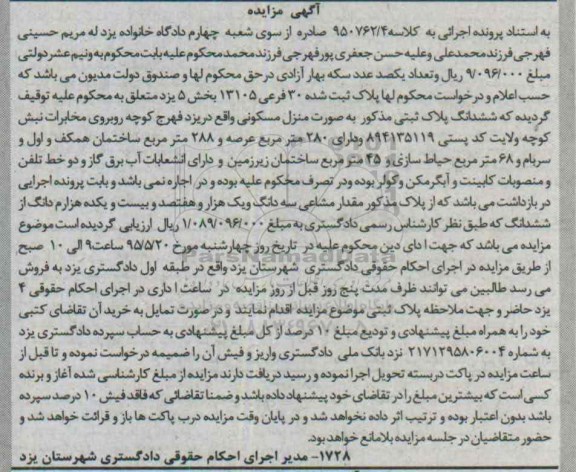 آگهی مزایده
به استناد پرونده اجرائی به کلاسه ۹۵۰۷۶۲/۴ صادره از سوی شعبه چهارم دادگاه خانواده یزد له مریم حسینی
فهرجی فرزند محمدعلی و علیه حسن جعفری پور فهرجی فرزند محمد محکوم علیه بابت محکوم به و نیم عشر دولتی
مبلغ ۹/۰۹۶/۰۰۰ ریال و تعداد یکصد عدد سکه بهار آزادی در حق محکوم لها و صندوق دولت مدیون می باشد که
حسب اعلام و درخواست محکوم لها پلاک ثبت شده ۳۰ فرعی ۱۳۱۰۵ بخش ۵ یزد متعلق به محکوم علیه توقیف
گردیده که ششدانگ پلاک ثبتی مذکور به صورت منزل مسکونی واقع در یزد فهرج کوچه روبروی مخابرات نبش
کوچه ولایت کد پستی ۸۹۴۱۳۵۱۱۹ ودارای ۲۸۰ متر مربع عرصه و ۲۸۸ متر مربع ساختمان همکف و اول و
سربام و ۶۸ متر مربع حیاط سازی و ۴۵ متر مربع ساختمان زیرزمین و دارای انشعابات آب برق گاز و دو خط تلفن
و منصوبات کابینت و آبگرمکن وکولر بوده ودر تصرف محکوم علیه بوده و در اجاره نمی باشد و بابت پرونده اجرایی
در بازداشت می باشد که از پلاک مذکور مقدار مشاعی سه دانگ ویک هزار و هفتصد و بیست و یکده هزارم دانگ از
ششدانگ که طبق نظر کارشناس رسمی دادگستری به مبلغ ۱/۰۸۹/۰۹۶/۰۰۰ ریال ارزیابی گردیده است موضوع
مزایده می باشد که جهت ادای دین محکوم علیه در تاریخ روز چهارشنبه مورخ ۹۵/۵/۲۰ ساعت ۹ الی ۱۰ صبح
از طریق مزایده در اجرای احکام حقوقی دادگستری شهرستان یزد واقع در طبقه اول دادگستری یزد به فروش
می رسد طالبین می توانند ظرف مدت پنج روز قبل از روز مزایده در ساعت اداری در اجرای احکام حقوقی ۴
یزد حاضر و جهت ملاحظه پلاک ثبتی موضوع مزایده اقدام نمایند و در صورت تمایل به خرید آن تقاضای کتبی
خود را به همراه مبلغ پیشنهادی و تودیع مبلغ ۱۰ درصد از کل مبلغ پیشنهادی به حساب سپرده دادگستری یزد
به شماره ۲۱۷۱۲۹۵۸۰۶۰۰۴ نزد بانک ملی دادگستری واریز و فیش آن را ضمیمه درخواست نموده و تا قبل از
ساعت مزایده در پاکت دربسته تحویل اجرا نموده و رسید دریافت دارند مزایده از مبلغ کارشناسی شده آغاز و برنده
کسی است که بیشترین مبلغ را در تقاضای خود پیشنهاد داده باشد و ضمنا تقاضائی که فاقد فیش ۱۰ درصد سپرده
باشد بدون اعتبار بوده و ترتیب اثر داده نخواهد شد و در پایان وقت مزایده درب پاکت ها باز و قرائت خواهد شد و
حضور متقاضیان در جلسه مزایده بلامانع خواهد بود.
۱۷۲۸- مدیر اجرای احکام حقوقی دادگستری شهرستان یزد